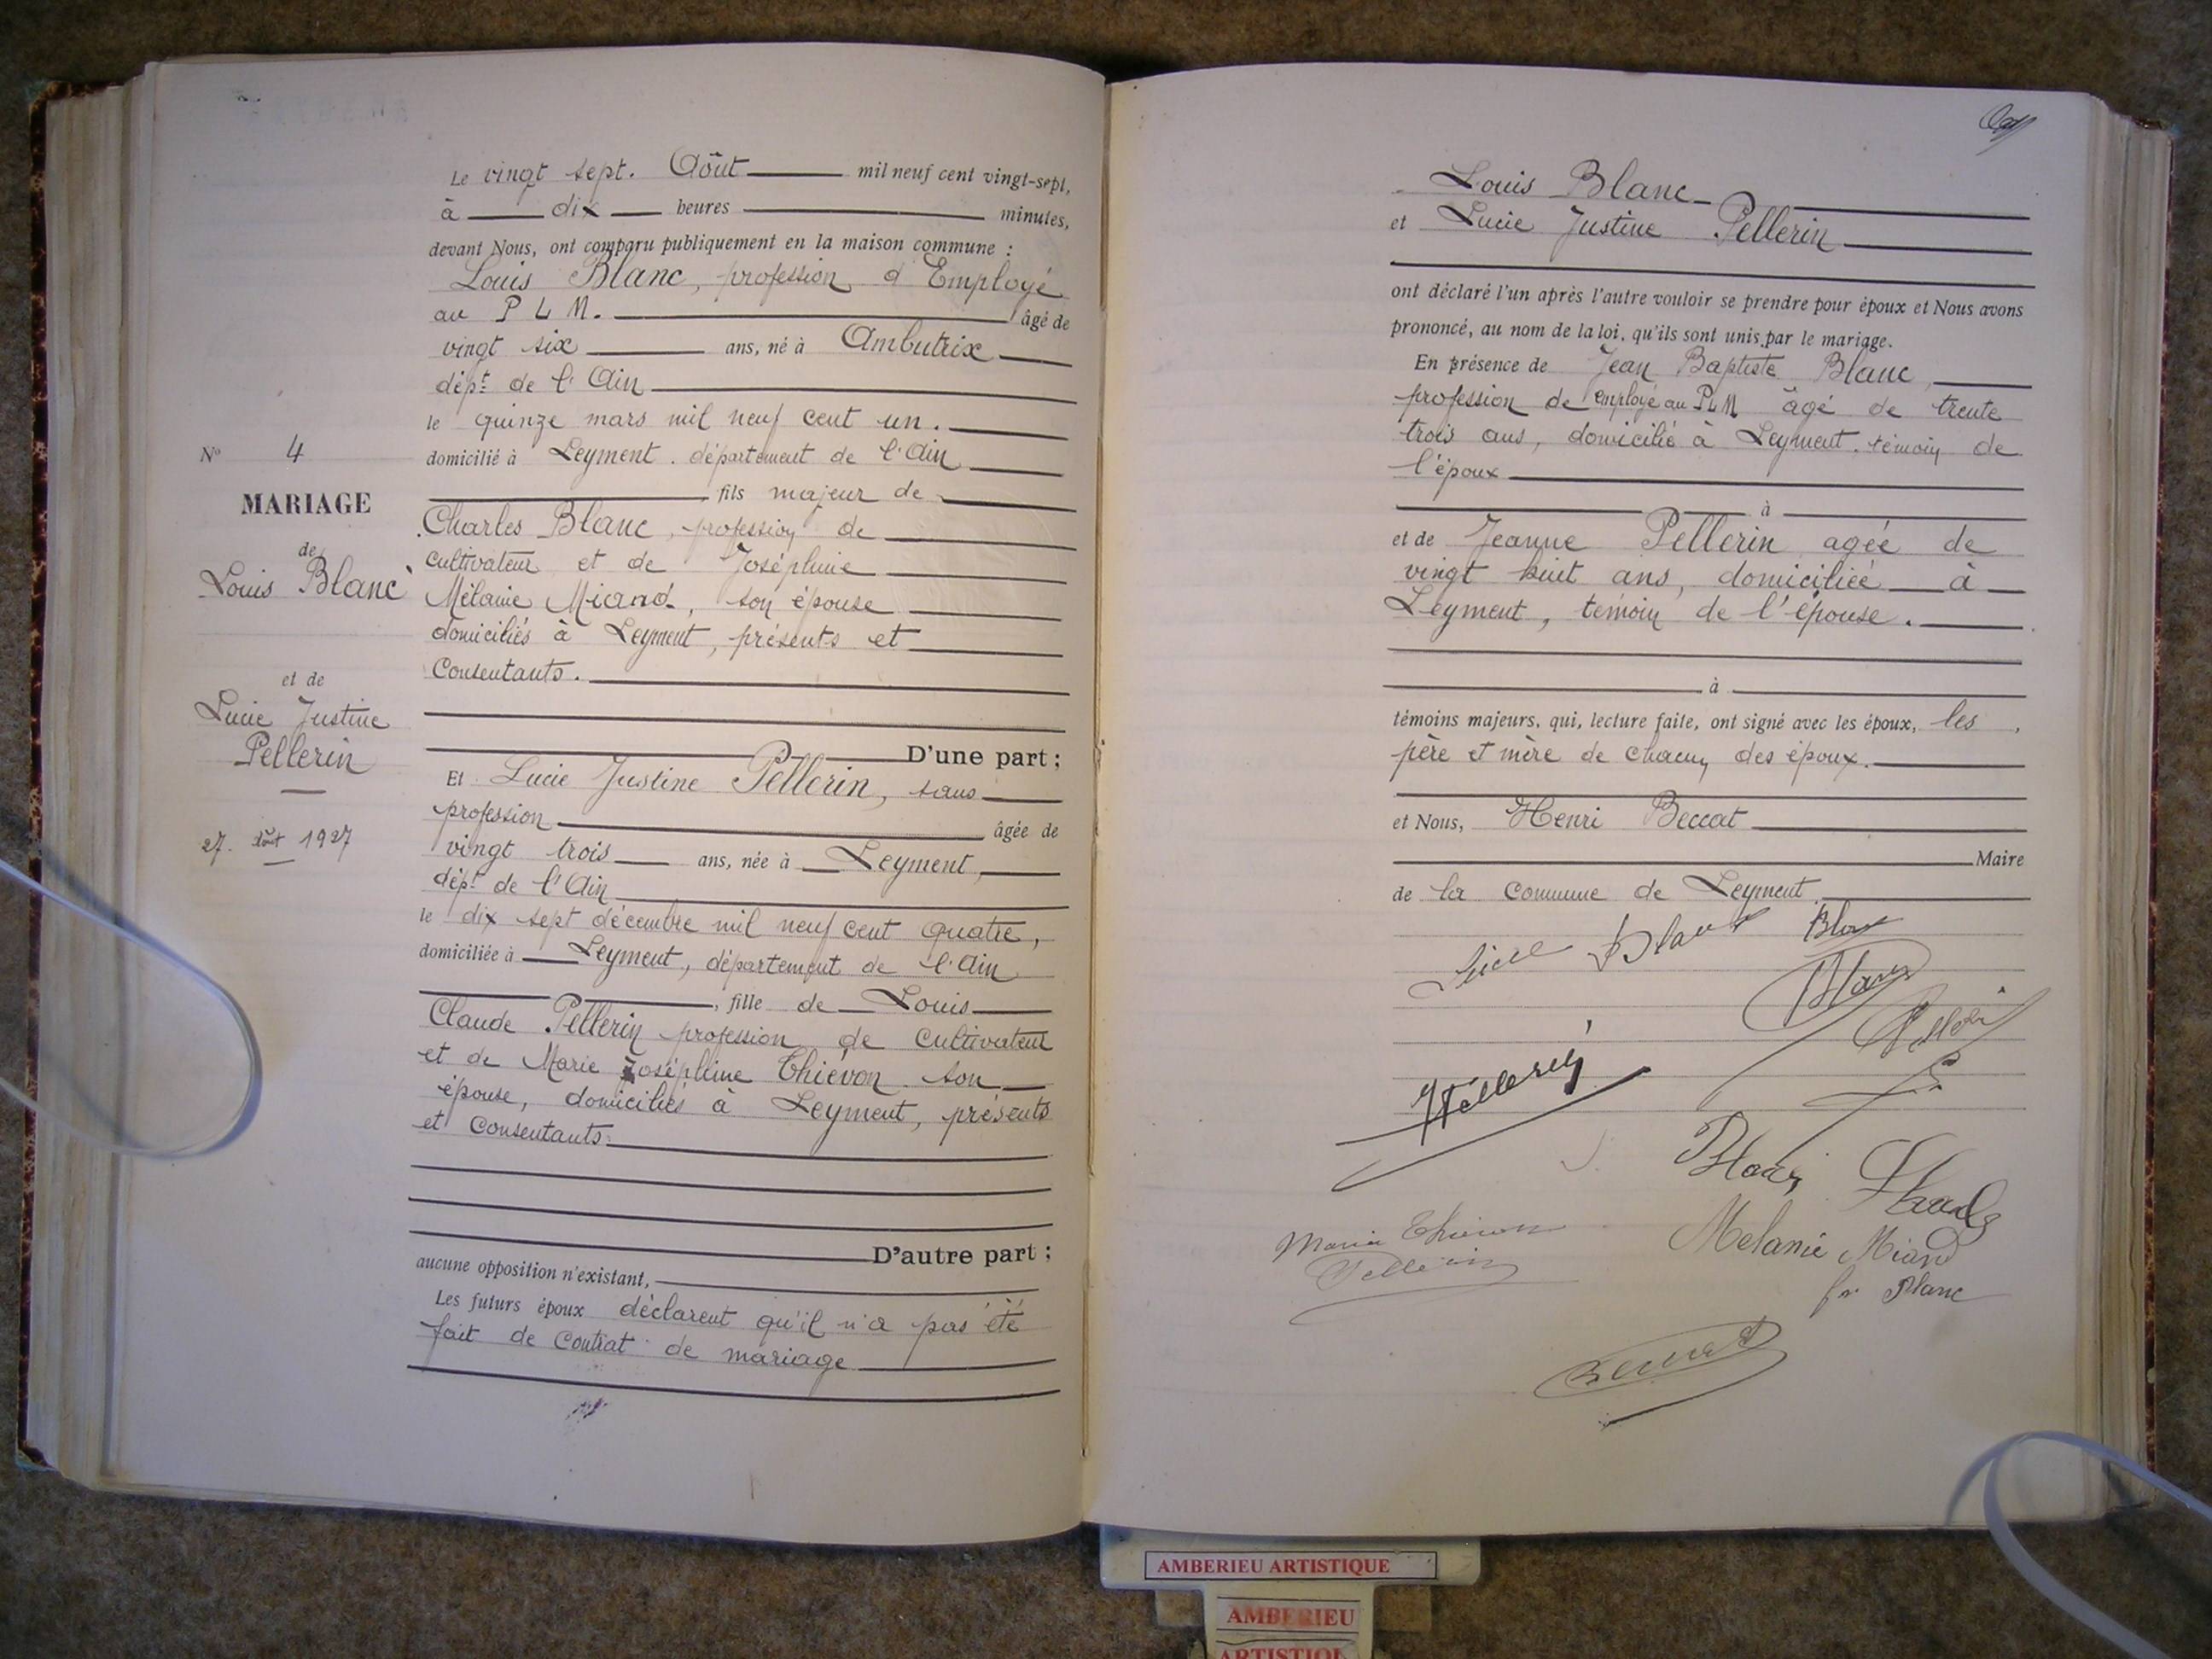 N° 4
MARIAGE
de
Louis Blanc
et de
Lucie Justine
Pellerin
27. Août 1927
Le vingt sept. Août mil neuf cent vingt-sept,
à dix heures minutes,
devant Nous, ont comparu publiquement en la maison commune :
Louis Blanc, profession d'Employé
au P L M. âgé de
vingt six ans, né à Ambutrix
dépt de l'Ain
le quinze mars mil neuf cent un.
domicilié à Leyment. département de l'Ain
fils majeur de
Charles Blanc, profession de
cultivateur et de Joséphine
Mélanie Miand, son épouse
domiciliés à Leyment, présents et
Consentants.
D'une part ;
Et Lucie Justine Pellerin, sans
profession âgée de
vingt trois ans, née à Leyment,
dépt de l'Ain
le dix sept décembre mil neuf cent quatre,
domiciliée à Leyment, département de l'Ain
, fille de Louis
Claude Pellerin profession de Cultivateur
et de Marie Joséphine Thiévon son
épouse, domiciliés à Leyment, présents
et Consentants.
D'autre part ;
aucune opposition n'existant,
Les futurs époux déclarent qu'il n'a pas été
fait de Contrat de mariage
Louis Blanc
et Lucie Justine Pellerin
ont déclaré l'un après l'autre vouloir se prendre pour époux et Nous avons
prononcé, au nom de la loi, qu'ils sont unis par le mariage.
En présence de Jean Baptiste Blanc,
profession de employé au PLM âgé de trente
trois ans, domicilié à Leyment. témoin de
l'époux
à
et de Jeanne Pellerin agée de
vingt huit ans, domiciliée à
Leyment, temoin de l'épouse.
à
témoins majeurs, qui, lecture faite, ont signé avec les époux, les,
père et mère de chacun des époux.
et Nous, Henri Beccat
Maire
de la Commune de Leyment
Blanc
Blanc
Pellerin
Marie Thievon
Pellerin
Melanie Miand
fe Blanc
Beccat
AMBERIEU ARTISTIQUE
AMBERIEU
ARTISTIQUE